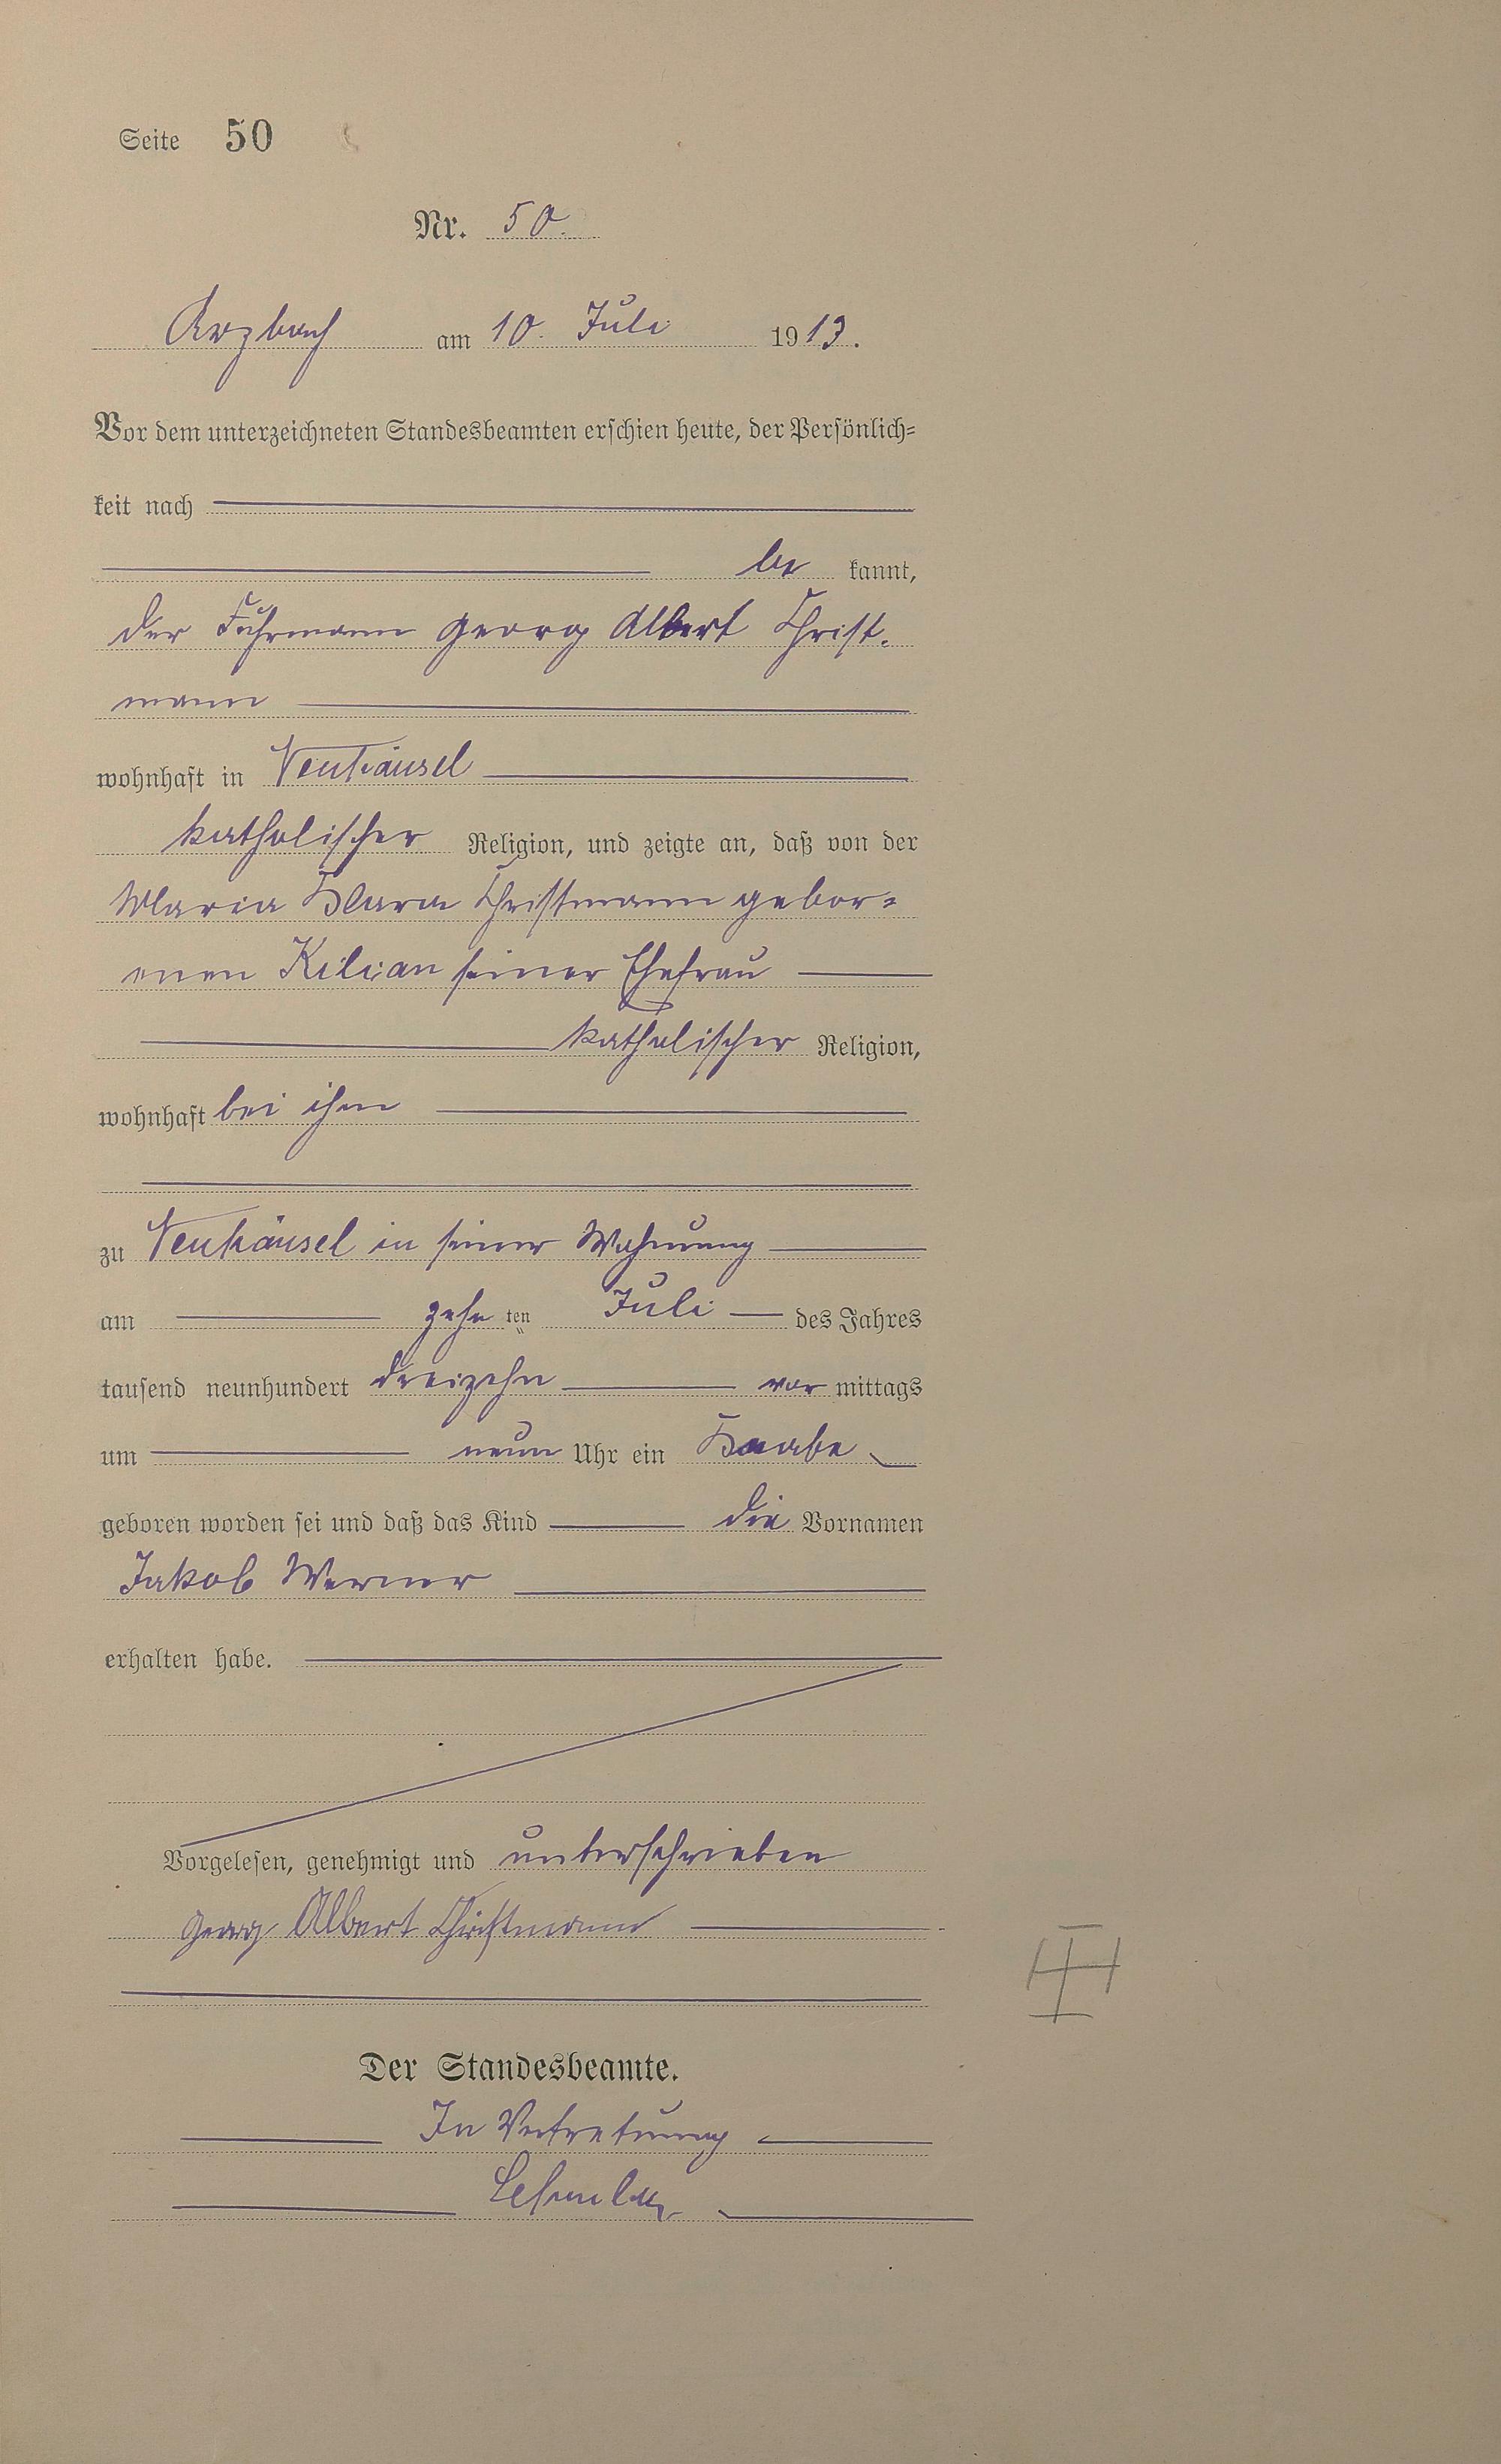 Seite 50
Nr. 50.
Arzbach am 10. Juli 1913.
Vor dem unterzeichneten Standesbeamten erschien heute, der Persönlich=
keit nach
be kannt,
der Fuhrmann Georg Albert Christ-
mann
wohnhaft in Neuhäusel
katholischer Religion, und zeigte an, daß von der
Maria Klara Christmann gebor=
enen Kilian seiner Ehefrau
katholischer Religion,
wohnhaft bei ihm
zu Neuhäusel in seiner Wohnung
am zehnten Juli des Jahres
tausend neunhundert dreizehn vor mittags
um neun Uhr ein Knabe
geboren worden sei und daß das Kind die Vornamen
Jakob Werner
erhalten habe.
Vorgelesen, genehmigt und unterschrieben
Georg Albert Christmann
Der Standesbeamte.
In Vertretung